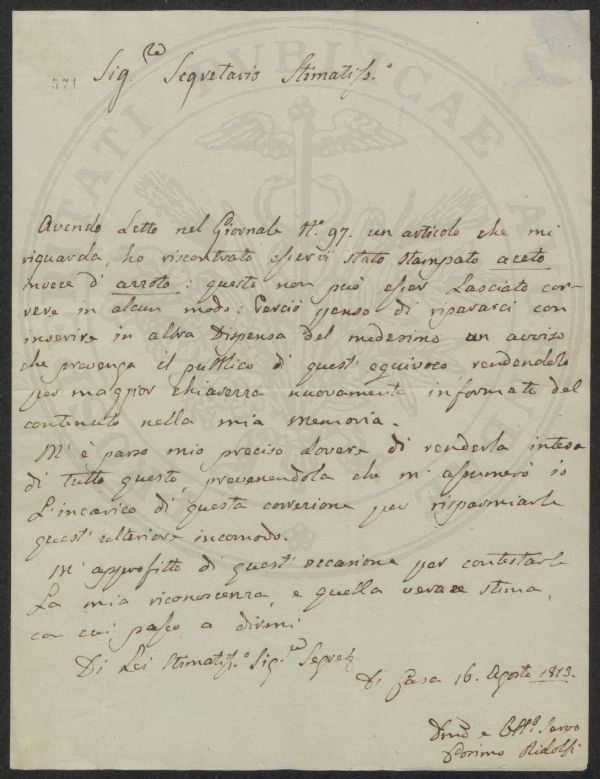 571
Sig.re Segretario Stimatiss.o
Avendo Letto nel Giornale N.o 97. un articolo che mi
riguarda, ho riscontrato esservi stato stampato aceto
invece di arroto: questo non può esser Lasciato cor-
rere in alcun modo: Perciò penso di ripararci con
inserire in altra Dispensa del medesimo un avviso
che prevenga il pubblico di quest' equivoco rendendolo
per maggior chiarezza nuovamente informato del
contenuto nella mia Memoria.
M' è parso mio preciso dovere di renderla intesa
di tutto questo, prevenendola che m' assumerò io
L'incarico di questa correzione per risparmiarle
quest' ulteriore incomodo.
M' approfitto di quest' occasione per contestarle
La mia riconoscenza, e quella verace stima,
con cui passo a dirmi
Di Lei Stimatiss.o Sig.re Segret.
Di Casa 16. Agosto 1813.
Dmo e Obb.o Servo
Cosimo Ridolfi